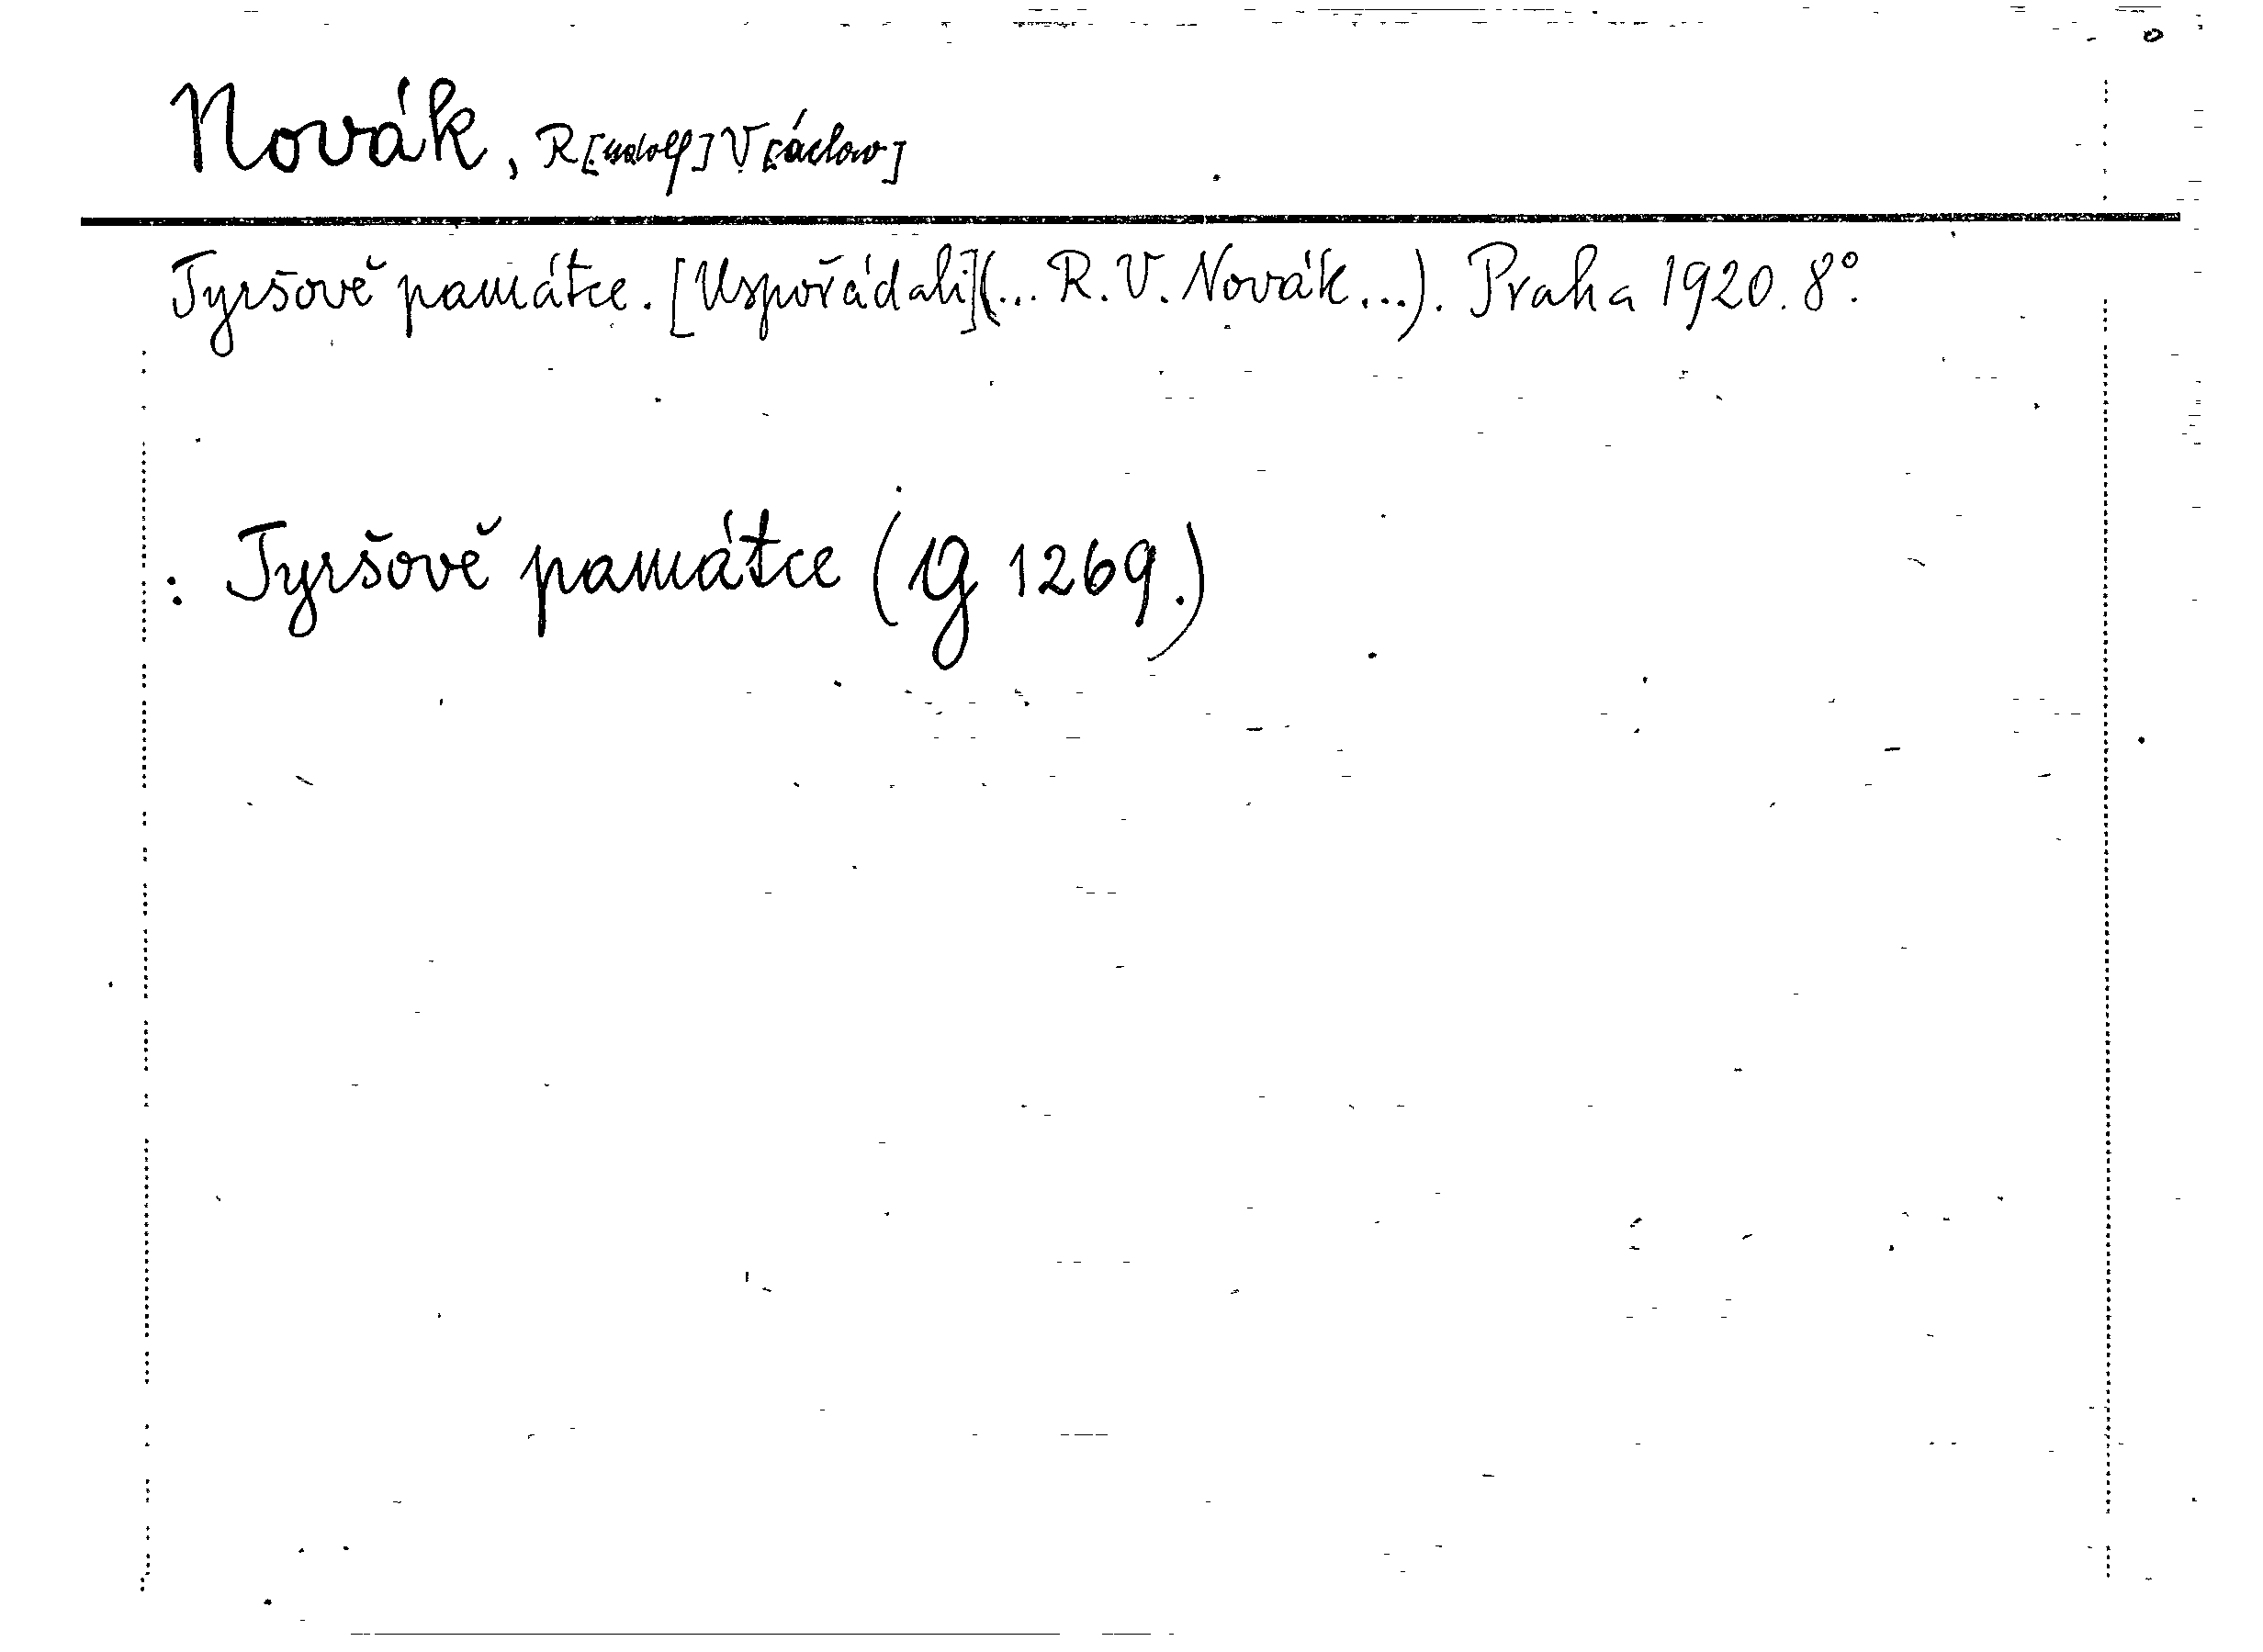 Novák, R[udolf] V[áclav]
Tyršově památce. [Uspořádali](... R. V. Novák...). Praha 1920. 8°.
: Tyršově památce (Ig 1269.)